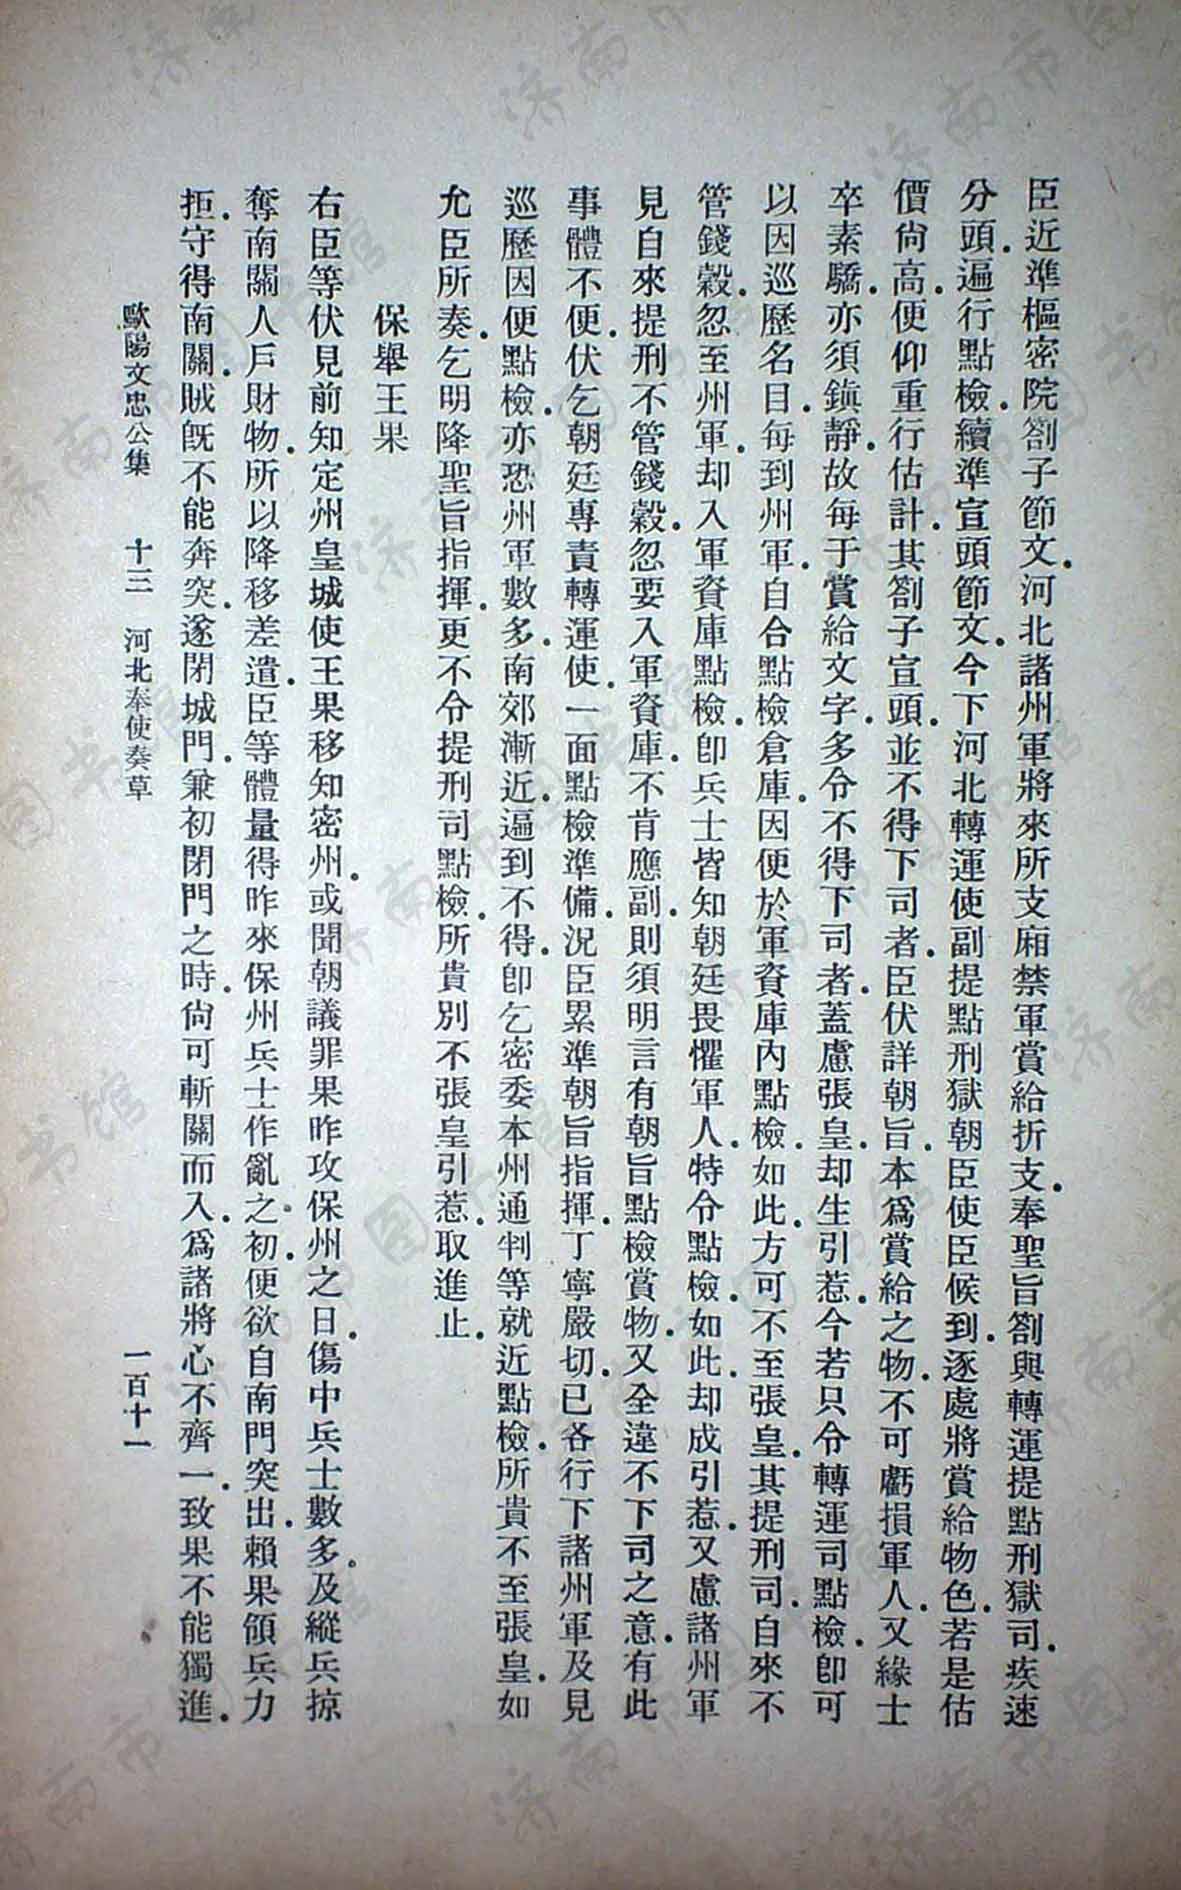 臣近準樞密院劄子節文．河北諸州軍將來所支廂禁軍賞給折支．奉聖旨劄與轉運提點刑獄司．疾速
分頭．遍行點檢．續準宣頭節文．今下河北轉運使副提點刑獄朝臣使臣候到．逐處將賞給物色．若是估
價尚高．便仰重行估計．其劄子宣頭．並不得下司者．臣伏詳朝旨．本爲賞給之物．不可虧損軍人．又緣士
卒素驕．亦須鎮靜．故每于賞給文字．多令不得下司者．蓋慮張皇．却生引惹．今若只令轉運司點檢．卽可
以因巡歷名目．每到州軍．自合點檢倉庫．因便於軍資庫內點檢．如此．方可不至張皇．其提刑司．自來不
管錢穀．忽至州軍．却入軍資庫點檢．卽兵士皆知朝廷畏懼軍人．特令點檢．如此．却成引惹．又慮諸州軍
見自來提刑不管錢穀．忽要入軍資庫．不肯應副．則須明言有朝旨點檢賞物．又全違不下司之意．有此
事體不便．伏乞朝廷專責轉運使．一面點檢準備．況臣累準朝旨指揮．丁寧嚴切．已各行下諸州軍及見
巡歷因便點檢．亦恐州軍數多．南郊漸近．遍到不得．卽乞密委本州通判等就近點檢．所貴不至張皇．如
允臣所奏．乞明降聖旨指揮．更不令提刑司點檢．所貴別不張皇引惹．取進止．
保舉王果
右臣等伏見前知定州皇城使王果移知密州．或聞朝議罪果昨攻保州之日．傷中兵士數多．及縱兵掠
奪南關人戶財物．所以降移差遣．臣等體量得昨來保州兵士作亂之初．便欲自南門突出．賴果領兵力
拒．守得南關．賊旣不能奔突．遂閉城門．兼初閉門之時．尚可斬關而入．爲諸將心不齊一．致果不能獨進．
歐陽文忠公集 十三 河北奉使奏草 一百十一
济南市图书馆